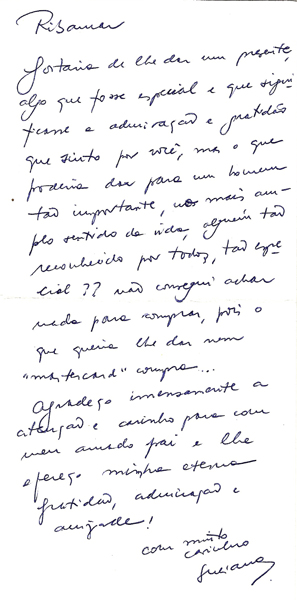 Ribamar
Gostaria de lhe dar um presente,
algo que fosse especial e que signi-
ficasse a admiração e gratidão
que sinto por você, mas o que
poderia dar para um homem
tão importante, no mais am-
plo sentido da vida, alguém tão
reconhecido por todos, tão espe-
cial?? não consegui achar
nada para comprar, pois o
que queria lhe dar nem
"mastercard" compra...
Agradeço imensamente a
atenção e carinho para com
meu amado pai e lhe
ofereço minha eterna
gratidão, admiração e
amizade!
com muito
carinho
Luciana